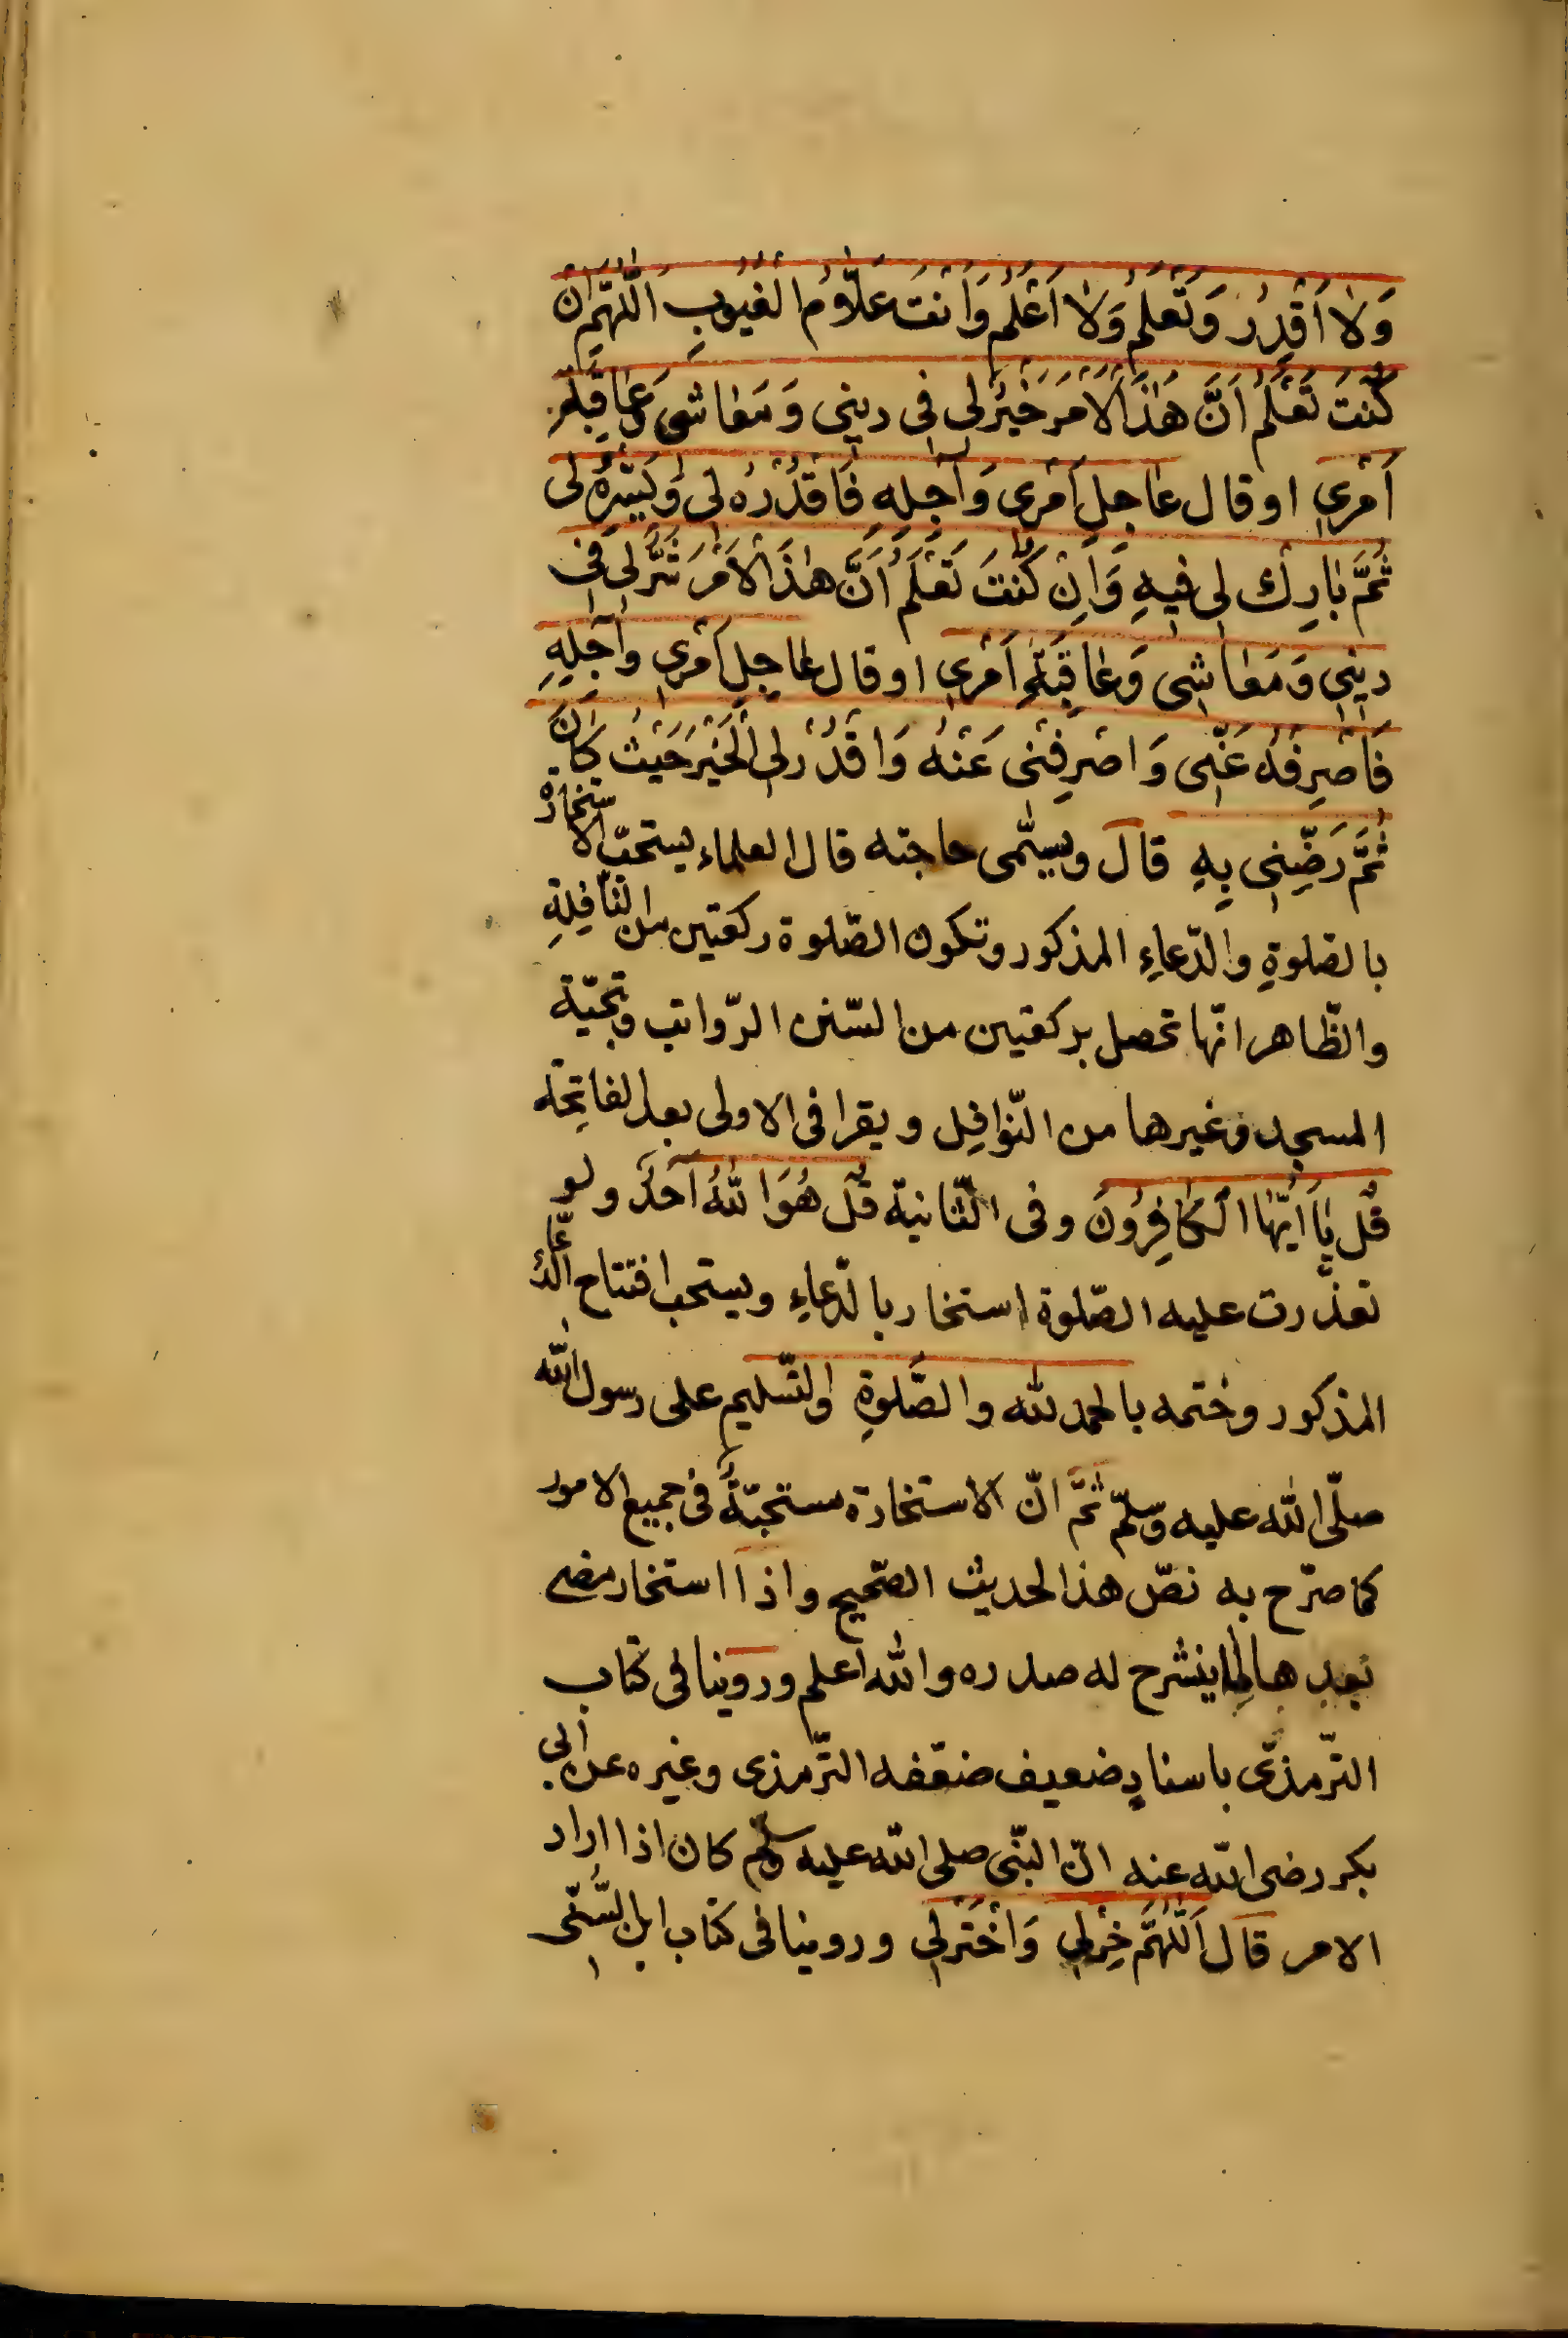 وَلَا اَقْدِرُ وَتَعْلَمُ وَلَا اَعْلَمُ وَاَنْتَ عَلَّامُ الْغُيُوبِ اَللّٰهُمَّ اِنْ
كُنْتَ تَعْلَمُ اَنَّ هٰذَا الْاَمْرَ خَيْرٌ لِى فِى دِينِى وَمَعَاشِى وَعَاقِبَةِ
اَمْرِي او قال عَاجِلِ اَمْرِى وَآجِلِهِ فَاقْدُرْهُ لِى وَيَسِّرْهُ لِى
ثُمَّ بَارِكْ لِى فِيهِ وَاِنْ كُنْتَ تَعْلَمُ اَنَّ هٰذَا الْاَمْرَ شَرٌّ لِى فِى
دِينِي وَمَعَاشِى وَعَاقِبَةِ اَمْرِي او قال عَاجِلِ اَمْرِي وَآجِلِهِ
فَاصْرِفْهُ عَنِّى وَاصْرِفْنِى عَنْهُ وَاقْدُرْ لِىَ الْخَيْرَ حَيْثُ كَانَ
ثُمَّ رَضِّنِى بِهِ قال ويسمّى حاجته قال العلماء يستحبّ الاستخارة
بالصلوةِ والدّعاءِ المذكور وتكون الصّلوة ركعتين من النّافِلةِ
والظّاهر انّها تحصل بركعتين من السّنن الرّواتب وتحيّة
المسجد وغيرها من النّوافِل ويقرا فى الاولى بعد الفاتِحة
قُلْ يَا اَيُّهَا الْكَافِرُونَ وفى الثّانية قُلْ هُوَ اللّٰهُ اَحَدٌ ولو
تعذّرت عليه الصّلوة استخار بالدّعاءِ ويستحب افتتاح الدّعاء
المذكور وختمه بالحمد لله والصَّلوةِ والتّسليم على رسول الله
صلّى الله عليه وسلّم ثُمَّ انّ الاستخارة مستحبّةٌ فى جميع الامور
كما صرّح به نصّ هذا الحديث الصّحيح واذا استخار مضى
بعدها لما ينشرح له صدره والله اعلم وروينا فى كتاب
التّرمذىّ باسنادٍ ضعيف ضعّفه التّرمذى وغيره عن ابى
بكر رضى الله عنه انّ النبّى صلى الله عليه وسلّم كان اذا اراد
الامر قال اَللّٰهُمَّ خِرْ لِي وَاخْتَرْ لِي وروينا فى كتاب ابن السُّنّى